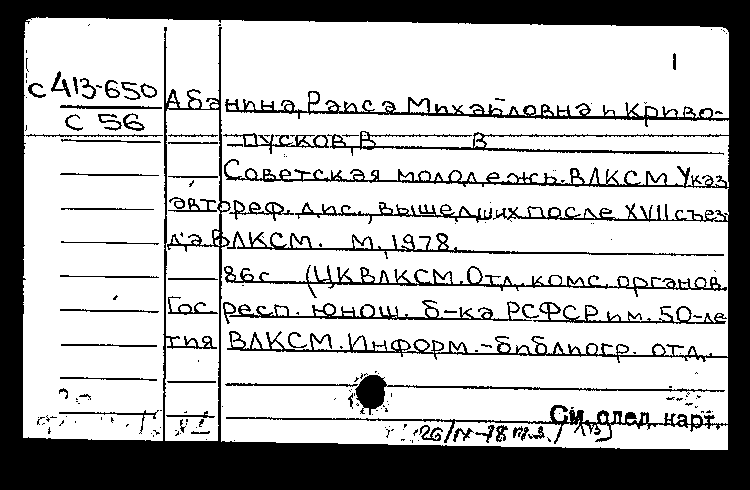 1
с413-650
с 56
Абанина, Раиса Михайловна и Криво-
пусков, В В
Советская молодежь. ВЛКСМ. Указ.
автореф. дис., вышедших после XVII съез
да ВЛКСМ. М., 1978.
86с (ЦК ВЛКСМ. Отд. комс. органов.
Гос. респ. юнош. б-ка РСФСР им. 50-ле
тия ВЛКСМ. Информ.-библиогр. отд.
См. след. карт.
26/IV-78